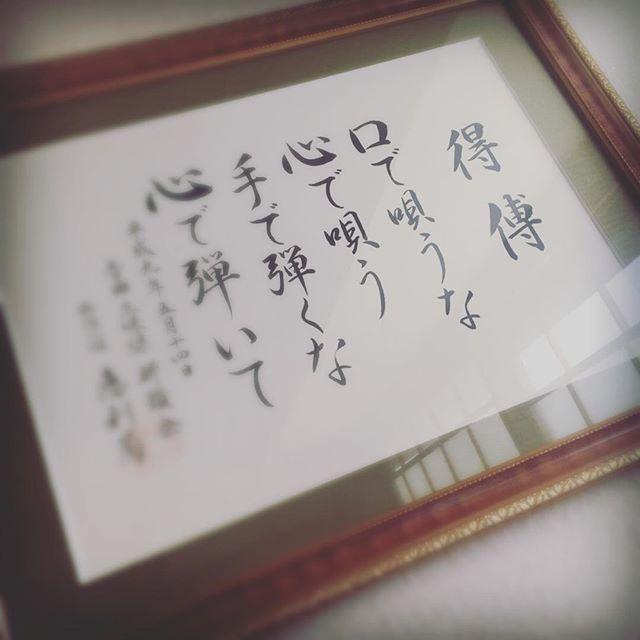 得傳
口で唄うな
心で唄う
手で弾くな
心で弾いて
平成九年五月十四日